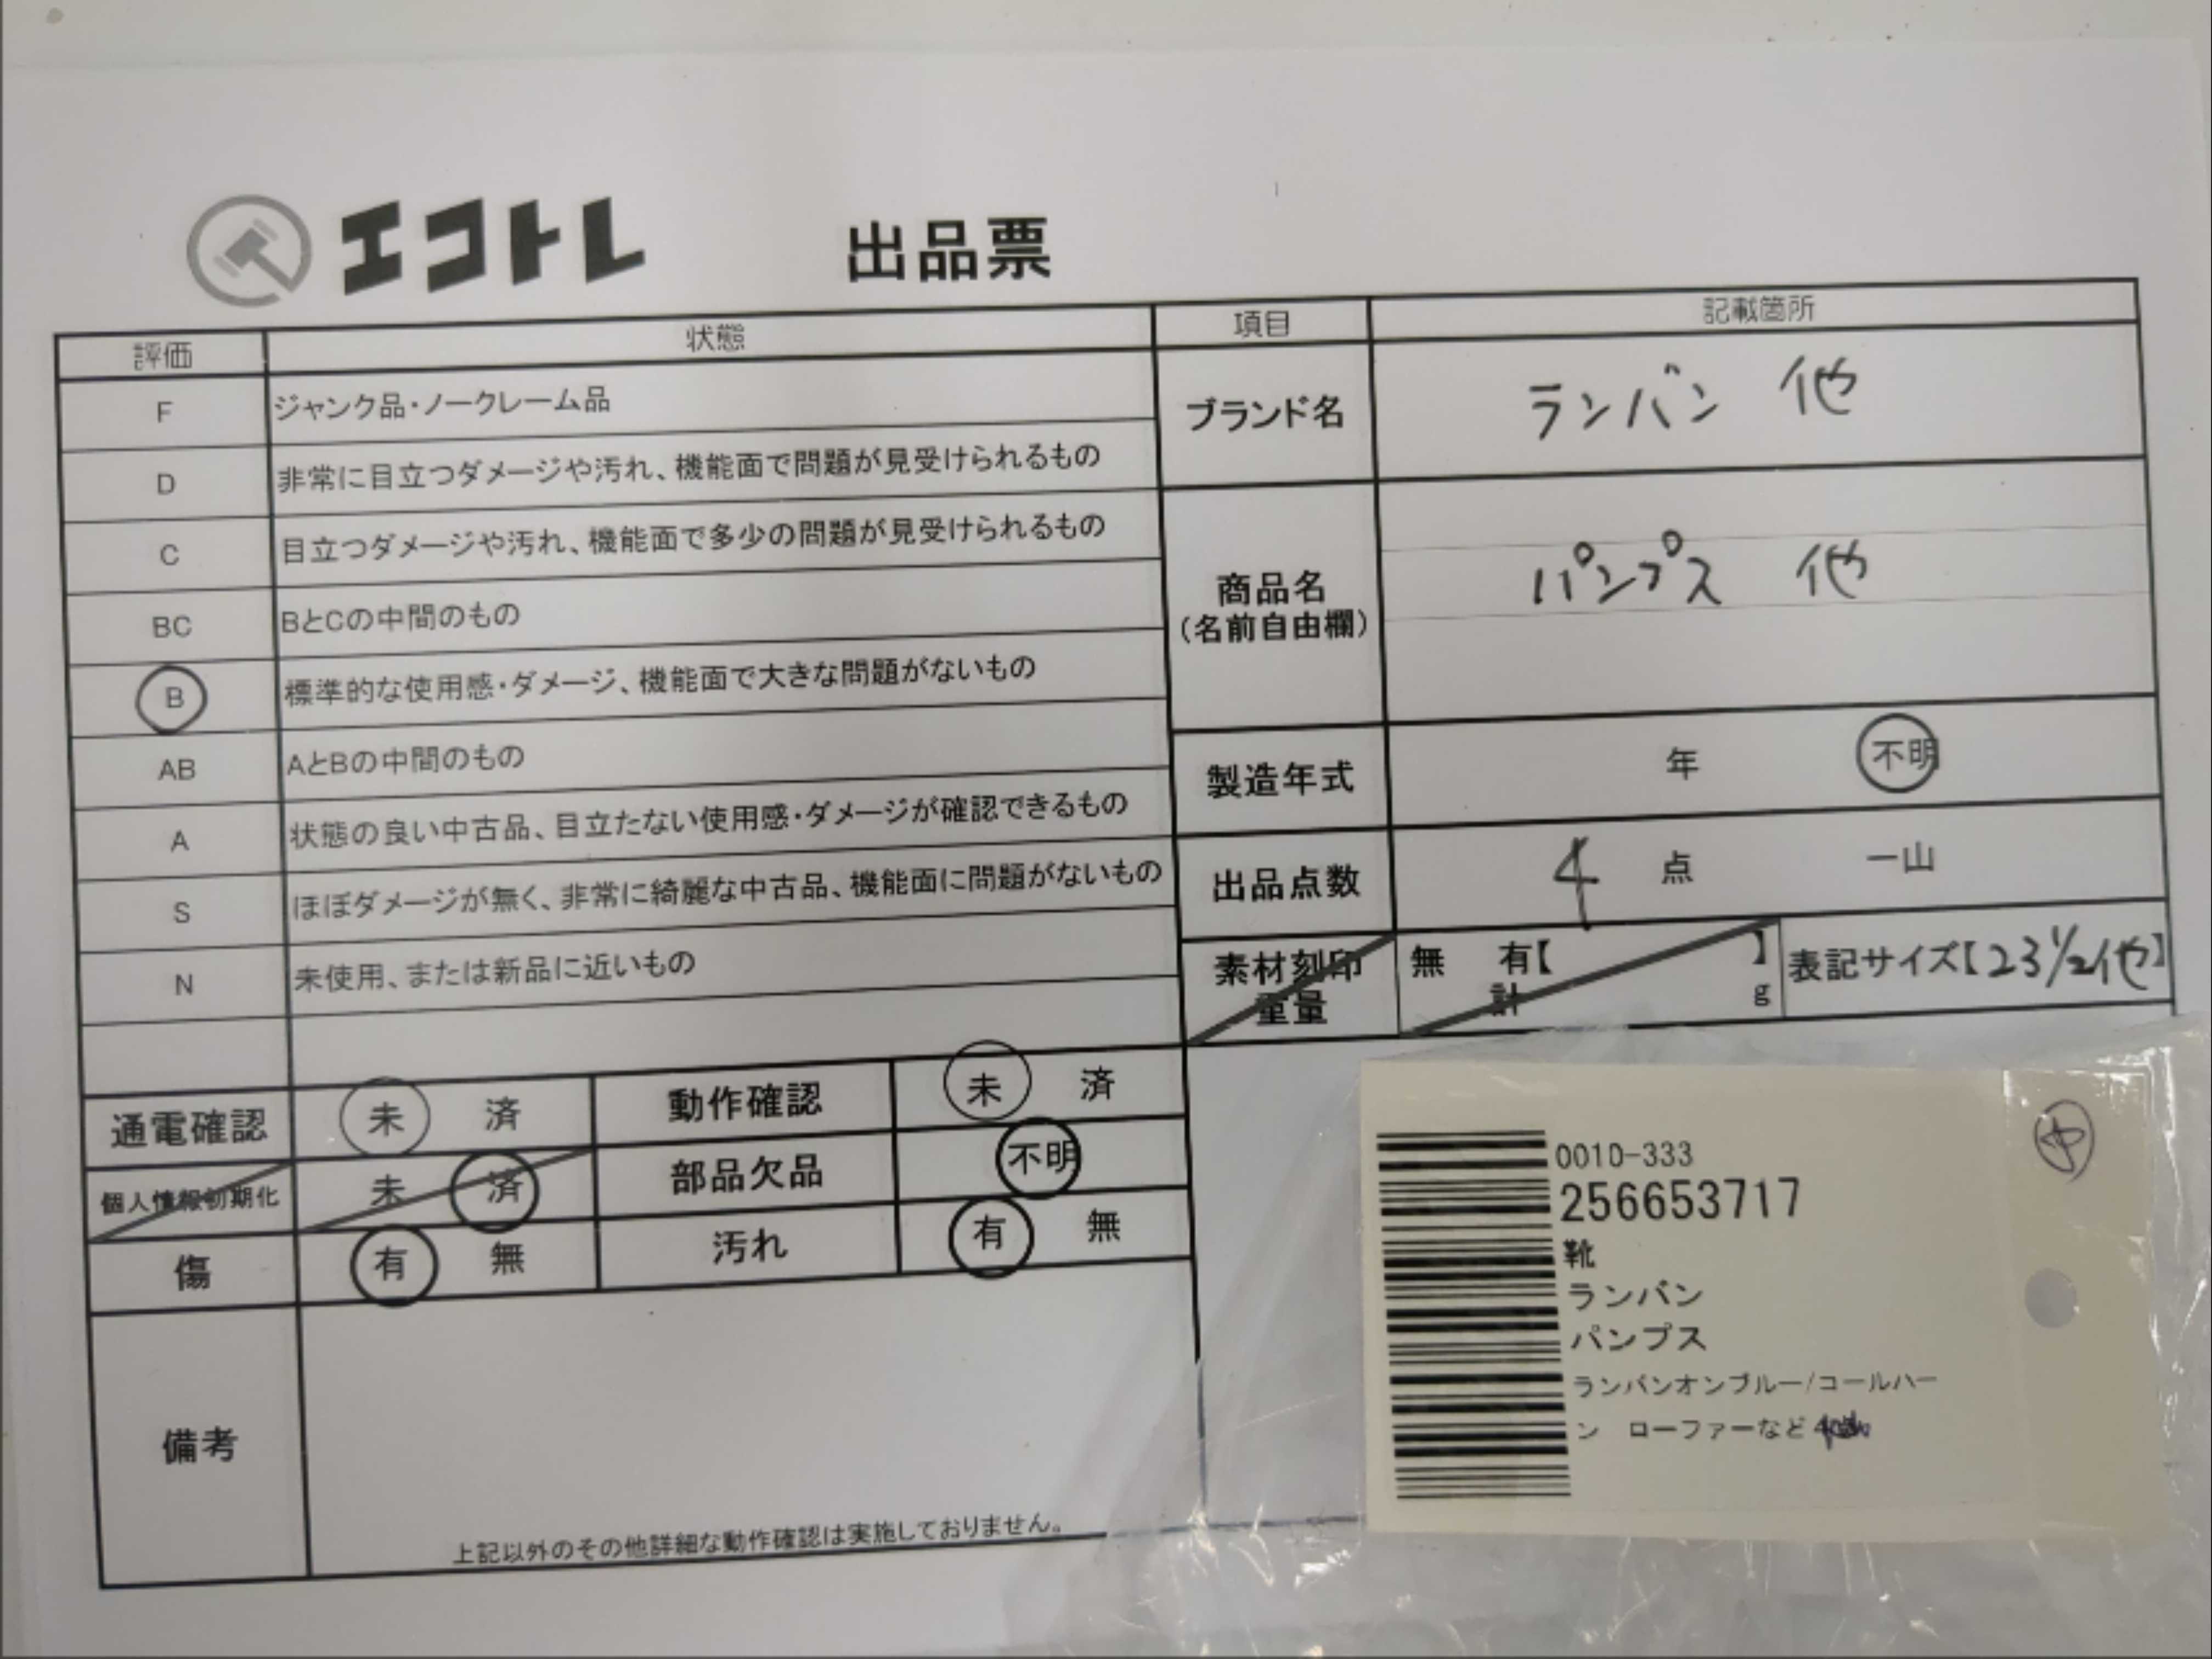 エコトレ 出品票
評価 状態 項目 記載箇所
F ジャンク品・ノークレーム品
D 非常に目立つダメージや汚れ、機能面で問題が見受けられるもの
C 目立つダメージや汚れ、機能面で多少の問題が見受けられるもの
BC BとCの中間のもの
B 標準的な使用感・ダメージ、機能面で大きな問題がないもの
AB AとBの中間のもの
A 状態の良い中古品、目立たない使用感・ダメージが確認できるもの
S ほぼダメージが無く、非常に綺麗な中古品、機能面に問題がないもの
N 未使用、または新品に近いもの
ブランド名 ランバン 他
商品名 パンプス 他
(名前自由欄)
製造年式 年 不明
出品点数 4 点 一山
素材刻印 無 有【 】 表記サイズ【23 1/2他】
重量 計 g
通電確認 未 済 動作確認 未 済
個人情報初期化 未 済 部品欠品 不明
傷 有 無 汚れ 有 無
備考
上記以外のその他詳細な動作確認は実施しておりません。
や
0010-333
256653717
靴
ランバン
パンプス
ランバンオンブルー/コールハー
ン ローファーなど